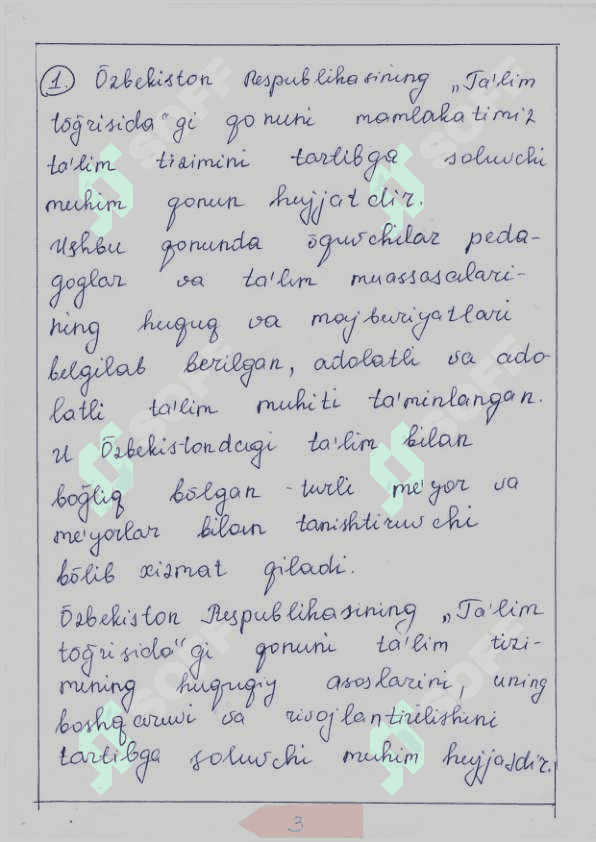 1. Õzbekiston Respublikasining „Ta'lim
tõğrisida"gi qonuni mamlakatimiz
ta'lim tizimini tartibga soluvchi
muhim qonun hujjatdir.
Ushbu qonunda õquvchilar peda-
goglar va ta'lim muassasalari-
ning huquq va majburiyatlari
belgilab berilgan, adolatli va ado-
latli ta'lim muhiti ta'minlangan.
U Õzbekistondagi ta'lim bilan
bõğliq bõlgan turli me'yor va
me'yorlar bilan tanishtiruvchi
bõlib xizmat qiladi.
Õzbekiston Respublikasining „Ta'lim
tõğrisida"gi qonuni ta'lim tizi-
mining huquqiy asoslarini, uning
boshqaruvi va rivojlantirilishini
tartibga soluvchi muhim hujjatdir.
3
SOFF
SOFF
SOFF
SOFF
SOFF
SOFF